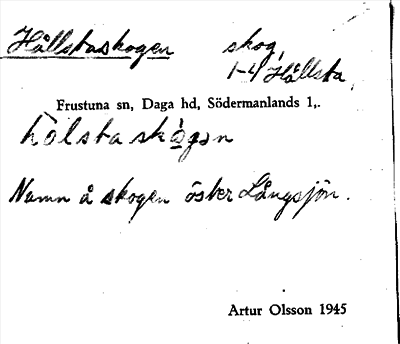 Hållstaskogen skog,
1-4 Hållsta,
Frustuna sn, Daga hd, Södermanlands l,.
holsta skogen
Namn å skogen öster Långsjön.
Artur Olsson 1945